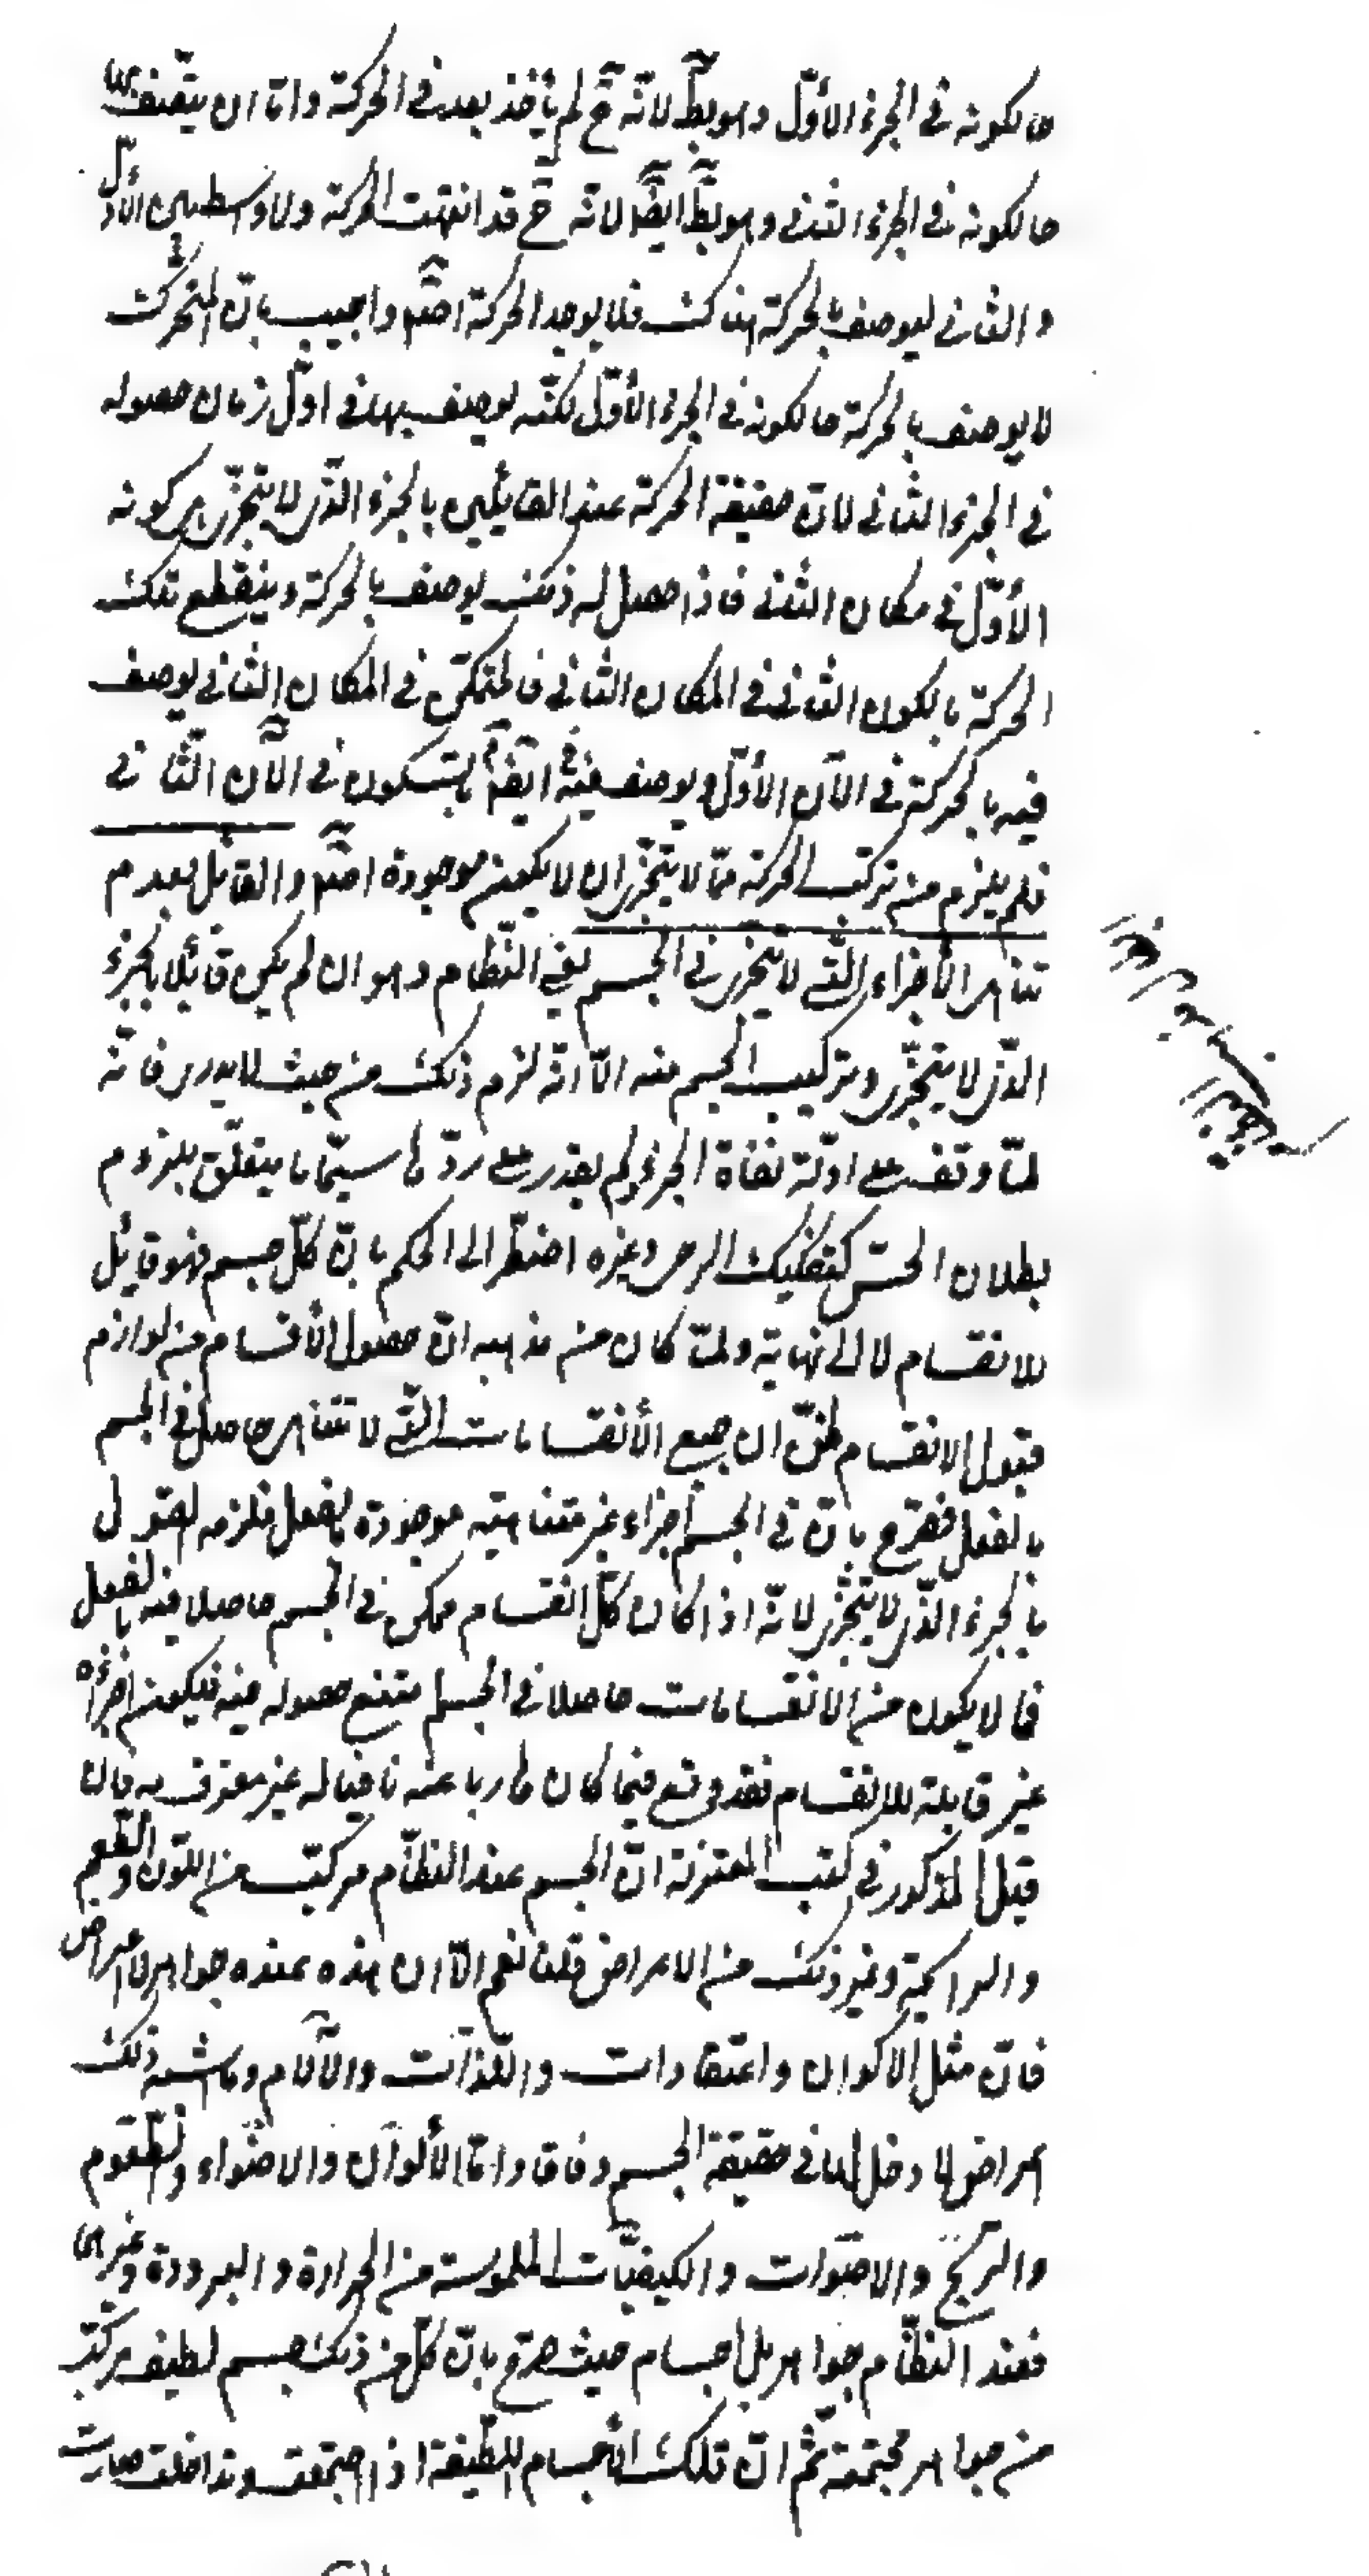 حالكونه فى الجزء الاول وهو بط لانه ح لم يأخذ بعد فى الحركة واما ان يتصف بها
حالكونه فى الجزء الثانى وهو بط ايضا لانه ح قد انتهت الحركة ولا واسطة بين الأول
والثانى ليوصف بالحركة هناك فلا يوجد الحركة اصلا واجيب بان المتحرك
لا يوصف بالحركة حالكونه فى الجزء الأول لكنه يوصف بها فى اول زمان حصوله
فى الجزء الثانى لان حقيقة الحركة عند القائلين بالجزء الذى لا يتجزى هى كونه
الأول فى مكان الثانى فاذا حصل له ذلك يوصف بالحركة وينقطع تلك
الحركة بالكون الثانى فى المكان الثانى فالمتمكن فى المكان الثانى يوصف
فيه بالحركة فى الآن الأول ويوصف فيه ايضا بالسكون فى الآن الثانى
فلم يلزم من تركب الحركة مما لا يتجزى ان لا يكون موجودة اصلا والقائل بعدم
تناهى الأجزاء التى لا يتجزى فى الجسم يعنى النظام وهو ان لم يكن قائلا بالجزء
الذى لا يتجزى وتركيب الجسم منه الا انه لزم ذلك من حيث لا يدرى فانه
لما وقف على ادلة نفاة الجزء ولم يقدر على ردها سيما ما يتعلق بلزوم
بطلان الحس كتفكيك الرحى وغيره اضطر الى الحكم بان كل جسم فهو قابل
للانقسام لا الى نهاية ولما كان من مذهبه ان حصول الأقسام من لوازم
قبول الانقسام ظن ان جميع الأنقسامات التى لا تتناهى حاصل فى الجسم
بالفعل فصرح بان فى الجسم اجزاء غير متناهية موجودة بالفعل فلزمه القول
بالجزء الذى لا يتجزى لانه اذا كان كل انقسام ممكن فى الجسم حاصلا فيه بالفعل
فما لا يكون من الانقسامات حاصلا فى الجسم امتنع حصوله فيه فيكون اجزائه
غير قابلة للانقسام فقد وقع فيما كان هاربا عنه نافيا له غير معترف به فان
قيل المذكور فى كتب المعتزلة ان الجسم عند النظام مركب من اللون والطعم
والرايحة وغير ذلك من الاعراض قلنا نعم الا ان هذه عنده جواهر لا اعراض
فان مثل الاكوان واعتقادات واللذات والآلام وما اشبه ذلك
اعراض لا دخل لها فى حقيقة الجسم وفاقا واما الألوان والاضواء والطعوم
والريح والاصوات والكيفيات الملموسة من الحرارة والبرودة وغيرها
فعند النظام جواهر بل اجسام حيث صرح بان كل من ذلك جسم لطيف مركب
من جواهر مجتمعة ثم ان تلك الأجسام اللطيفة اذا اجتمعت وتداخلت صارت